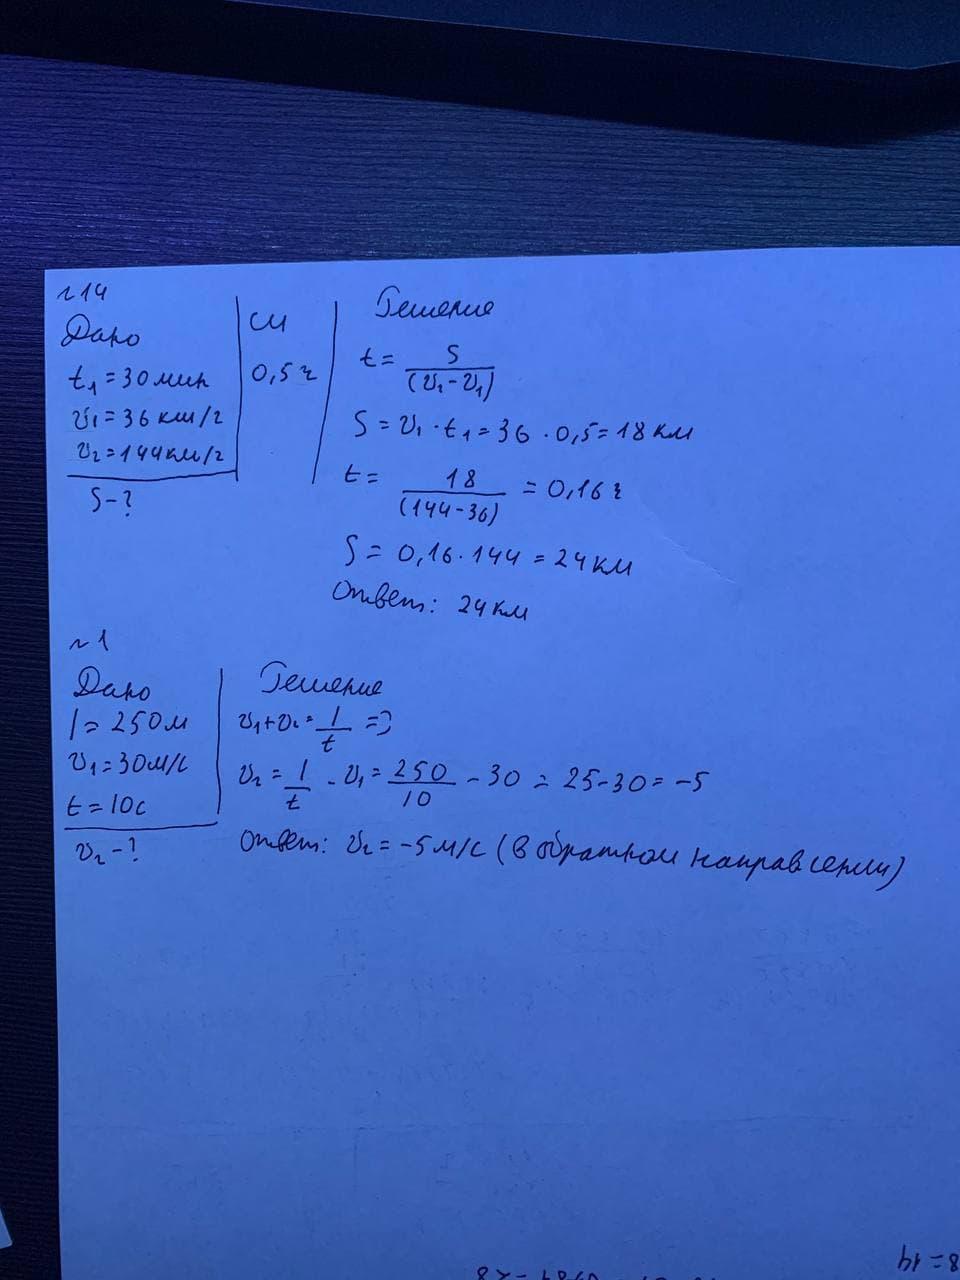 №14
Дано
t₁ = 30 мин
υ₁ = 36 км/г
υ₂ = 144 км/г
S - ?
СИ
0,5 г
Решение
t = S / (υ₂ - υ₁)
S = υ₁ · t₁ = 36 · 0,5 = 18 км
t = 18 / (144 - 36) = 0,16 г
S = 0,16 · 144 = 24 км
Ответ: 24 км
№1
Дано
l = 250 м
υ₁ = 30 м/с
t = 10 с
υ₂ - ?
Решение
υ₁ + υ₂ = l / t =>
υ₂ = l / t - υ₁ = 250 / 10 - 30 = 25 - 30 = -5
Ответ: υ₂ = -5 м/с (в обратном направлении)
8 = 14